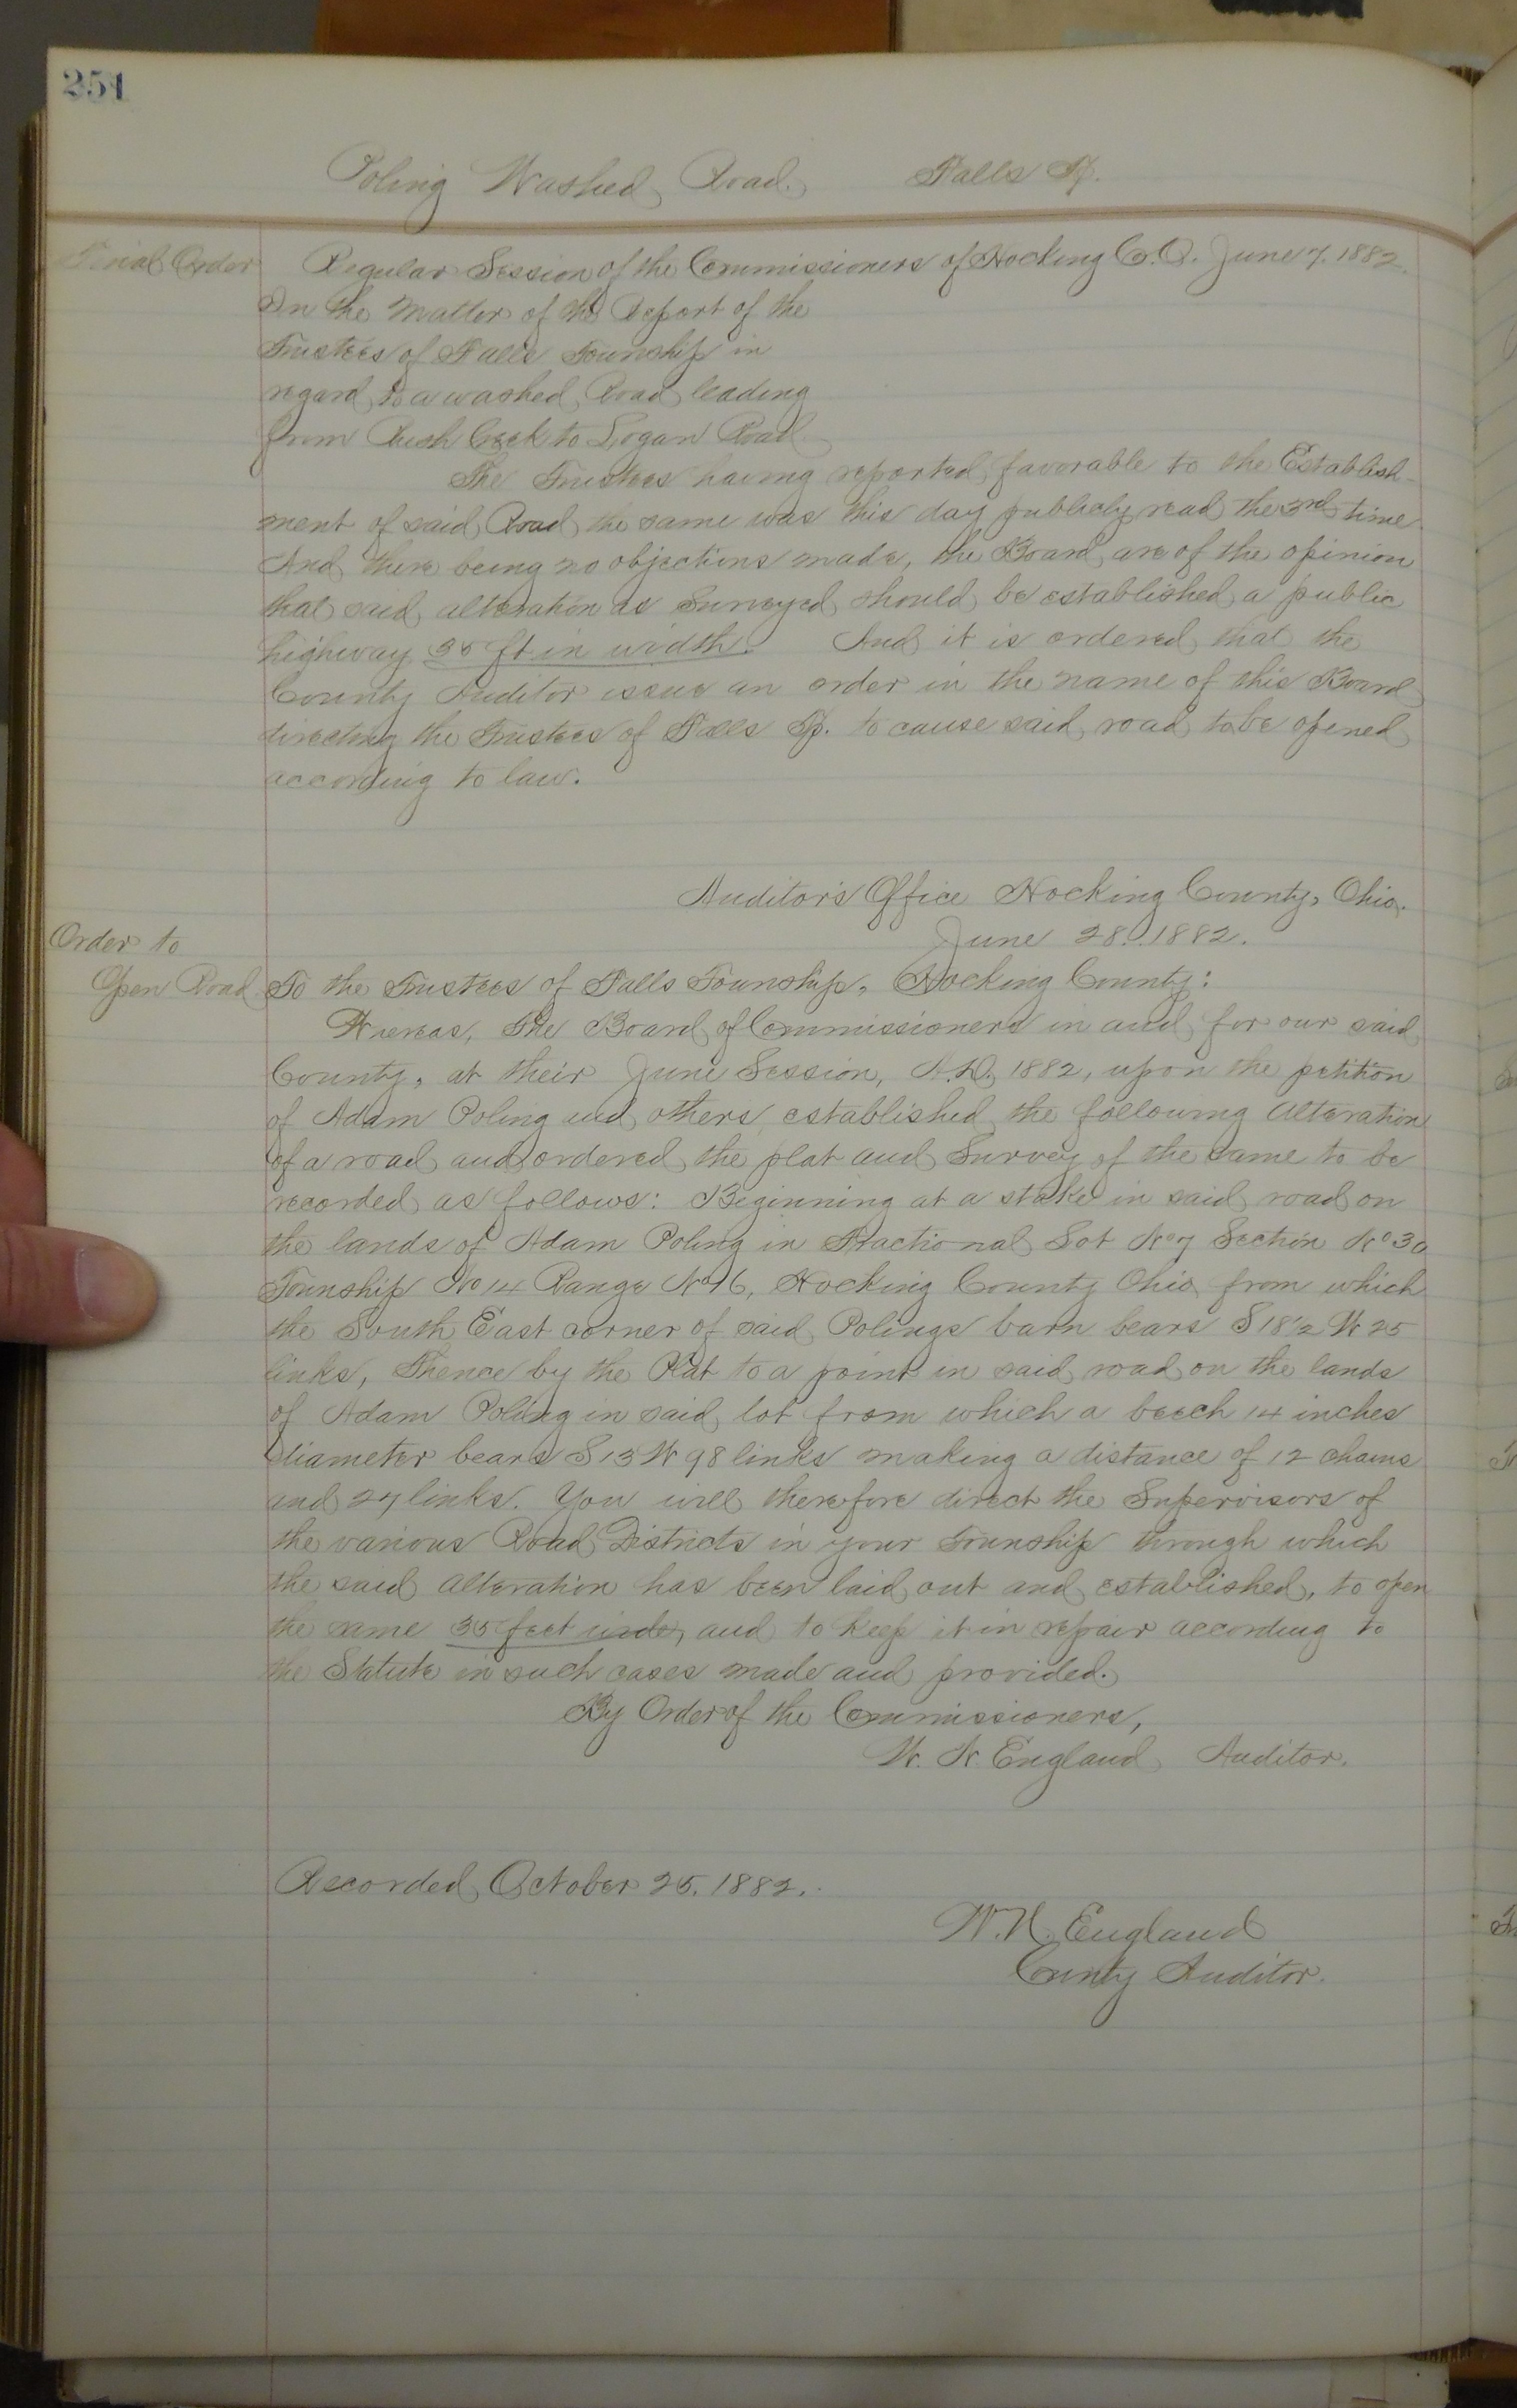 251
Poling Washed Road. Falls Tp.
Final Order
Regular Session of the Commissioners of Hocking Co. O. June 7. 1882.
In the Matter of the Report of the
Trustees of Falls Township in
regard to a washed Road leading
from Rush Creek to Logan Road
The Trustees having reported favorable to the Establish-
ment of said Road the same was this day publicly read the 3rd time
And there being no objections made, the Board are of the opinion
that said alteration as Surveyed should be established a public
highway 35 ft in width. And it is ordered that the
County Auditor issue an order in the name of this Board
directing the Trustees of Falls Tp. to cause said road to be opened
according to law.
Auditor's Office Hocking County, Ohio.
June 28. 1882.
Order to
Open Road
To the Trustees of Falls Township, Hocking County:
Whereas, The Board of Commissioners in and for our said
County, at their June Session, A.D. 1882, upon the petition
of Adam Poling and others established the following alteration
of a road and ordered the plat and Survey of the same to be
recorded as follows: Beginning at a stake in said road on
the lands of Adam Poling in Fractional Lot No 7 Section No 30
Township No 14 Range No 16, Hocking County Ohio from which
the South East corner of said Polings barn bears S 18 1/2 W 25
links, Thence by the Plat to a point in said road on the lands
of Adam Poling in said lot from which a beech 14 inches
diameter bears S 13 W 98 links making a distance of 12 chains
and 27 links. You will therefore direct the Supervisors of
the various Road Districts in your township through which
the said alteration has been laid out and established, to open
the same 35 feet wide, and to keep it in repair according to
the Statute in such cases made and provided.
By Order of the Commissioners,
W. N. England Auditor.
Recorded October 25. 1882.
W. N. England
County Auditor.